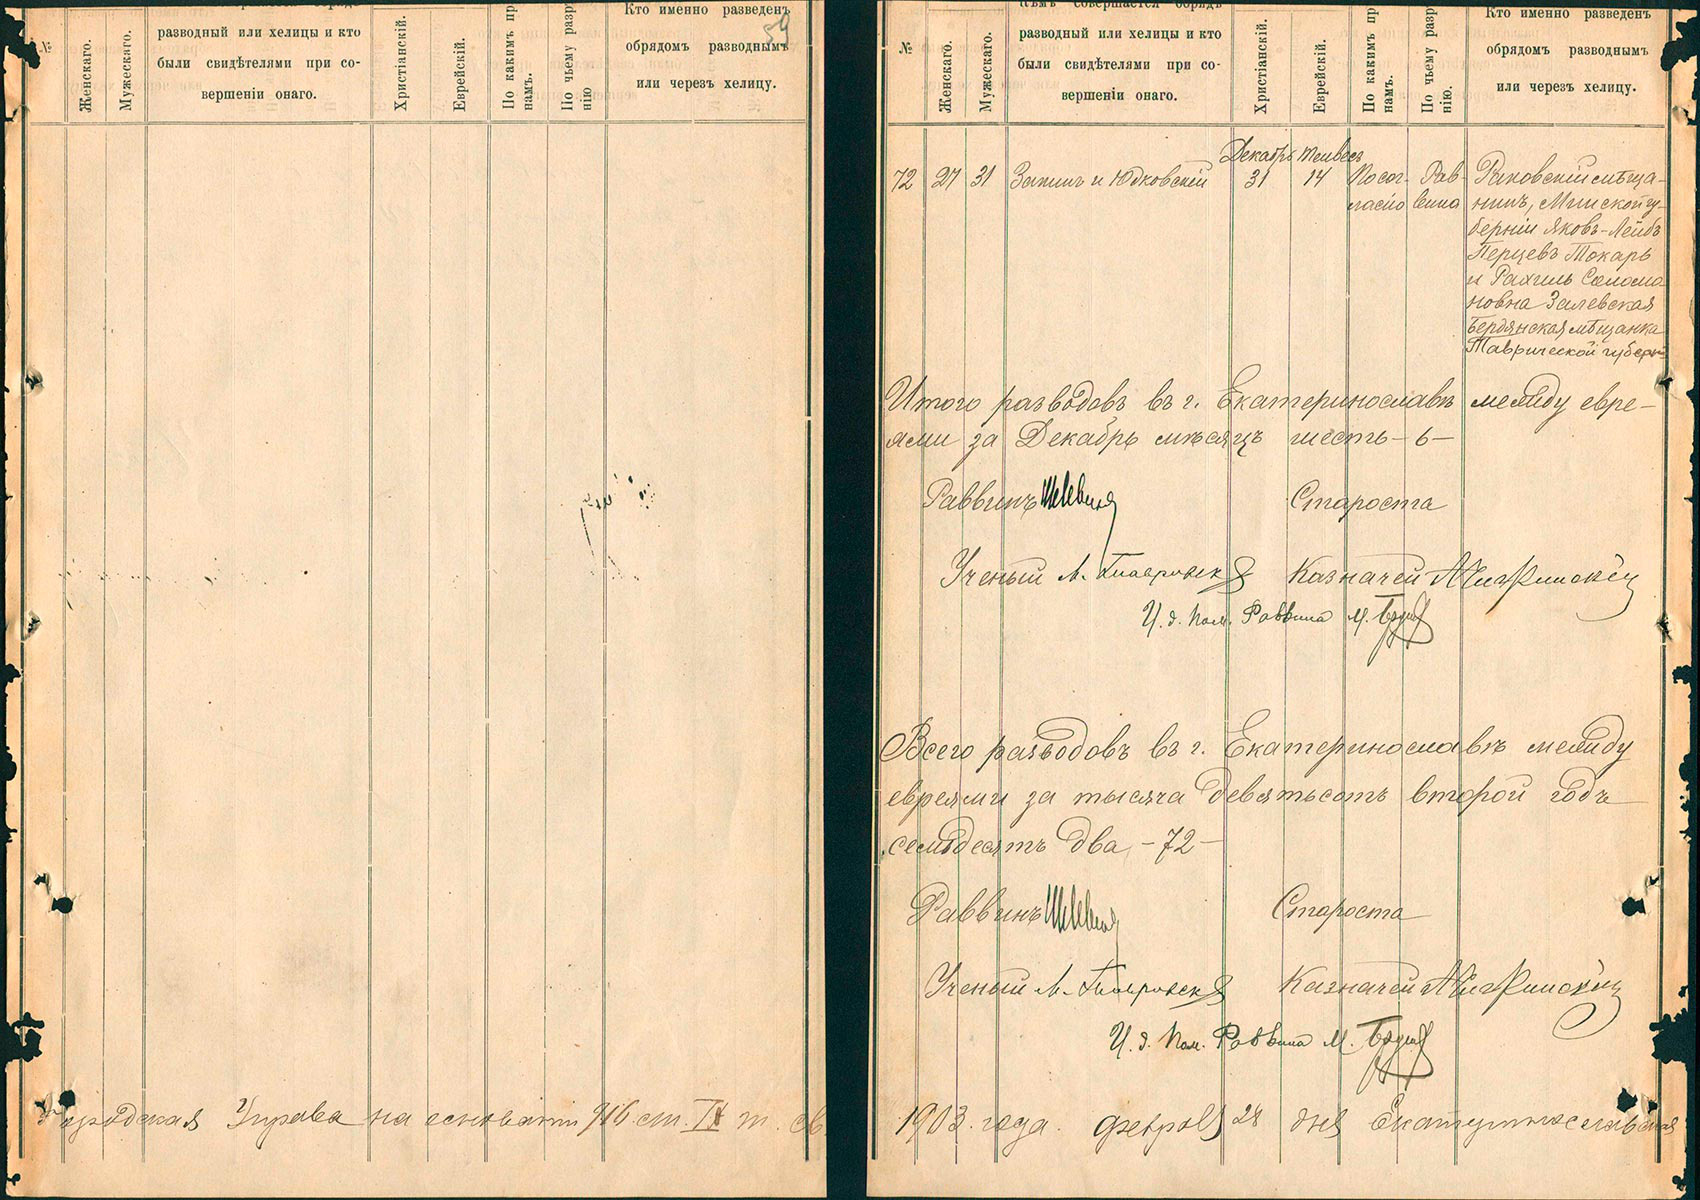 №
Женскаго.
Мужескаго.
разводный или хелицы и кто
были свидѣтелями при со-
вершеніи онаго.
Христіанскій.
Еврейскій.
По какимъ пр
намъ.
По чьему разр
нію
Кто именно разведенъ
обрядомъ разводнымъ
или черезъ хелицу.
59
Городская Управа на основаніи 916 ст. IX т. св.
кѣмъ совершается обрядъ
№
Женскаго.
Мужескаго.
разводный или хелицы и кто
были свидѣтелями при со-
вершеніи онаго.
Христіанскій.
Еврейскій.
По какимъ пр
намъ.
По чьему разр
нію.
Кто именно разведенъ
обрядомъ разводнымъ
или черезъ хелицу.
Декабрь Тейвесъ
72 27 31 и Юдковскій 31 14 По сог- Рав- Раковскій мѣща-
ласію вина нинъ, Минской гу-
берніи Яковъ-Лейбъ
Перцевъ Токарь
и Рахиль Соломо
новна Залевская
Бердянская мѣщанка
Таврической губерн
Итого разводовъ въ г. Екатеринославѣ между евре-
ями за Декабрь мѣсяцъ шесть - 6 -
Раввинъ Староста
Ученый Казначей
И. д. Пом. Раввина М.
Всего разводовъ въ г. Екатеринославѣ между
евреями за тысяча девятьсотъ второй годъ
семьдесятъ два - 72 -
Раввинъ Староста
Ученый Казначей
И. д. Пом. Раввина М.
1903 года. февраля 28 дня Екатеринославская